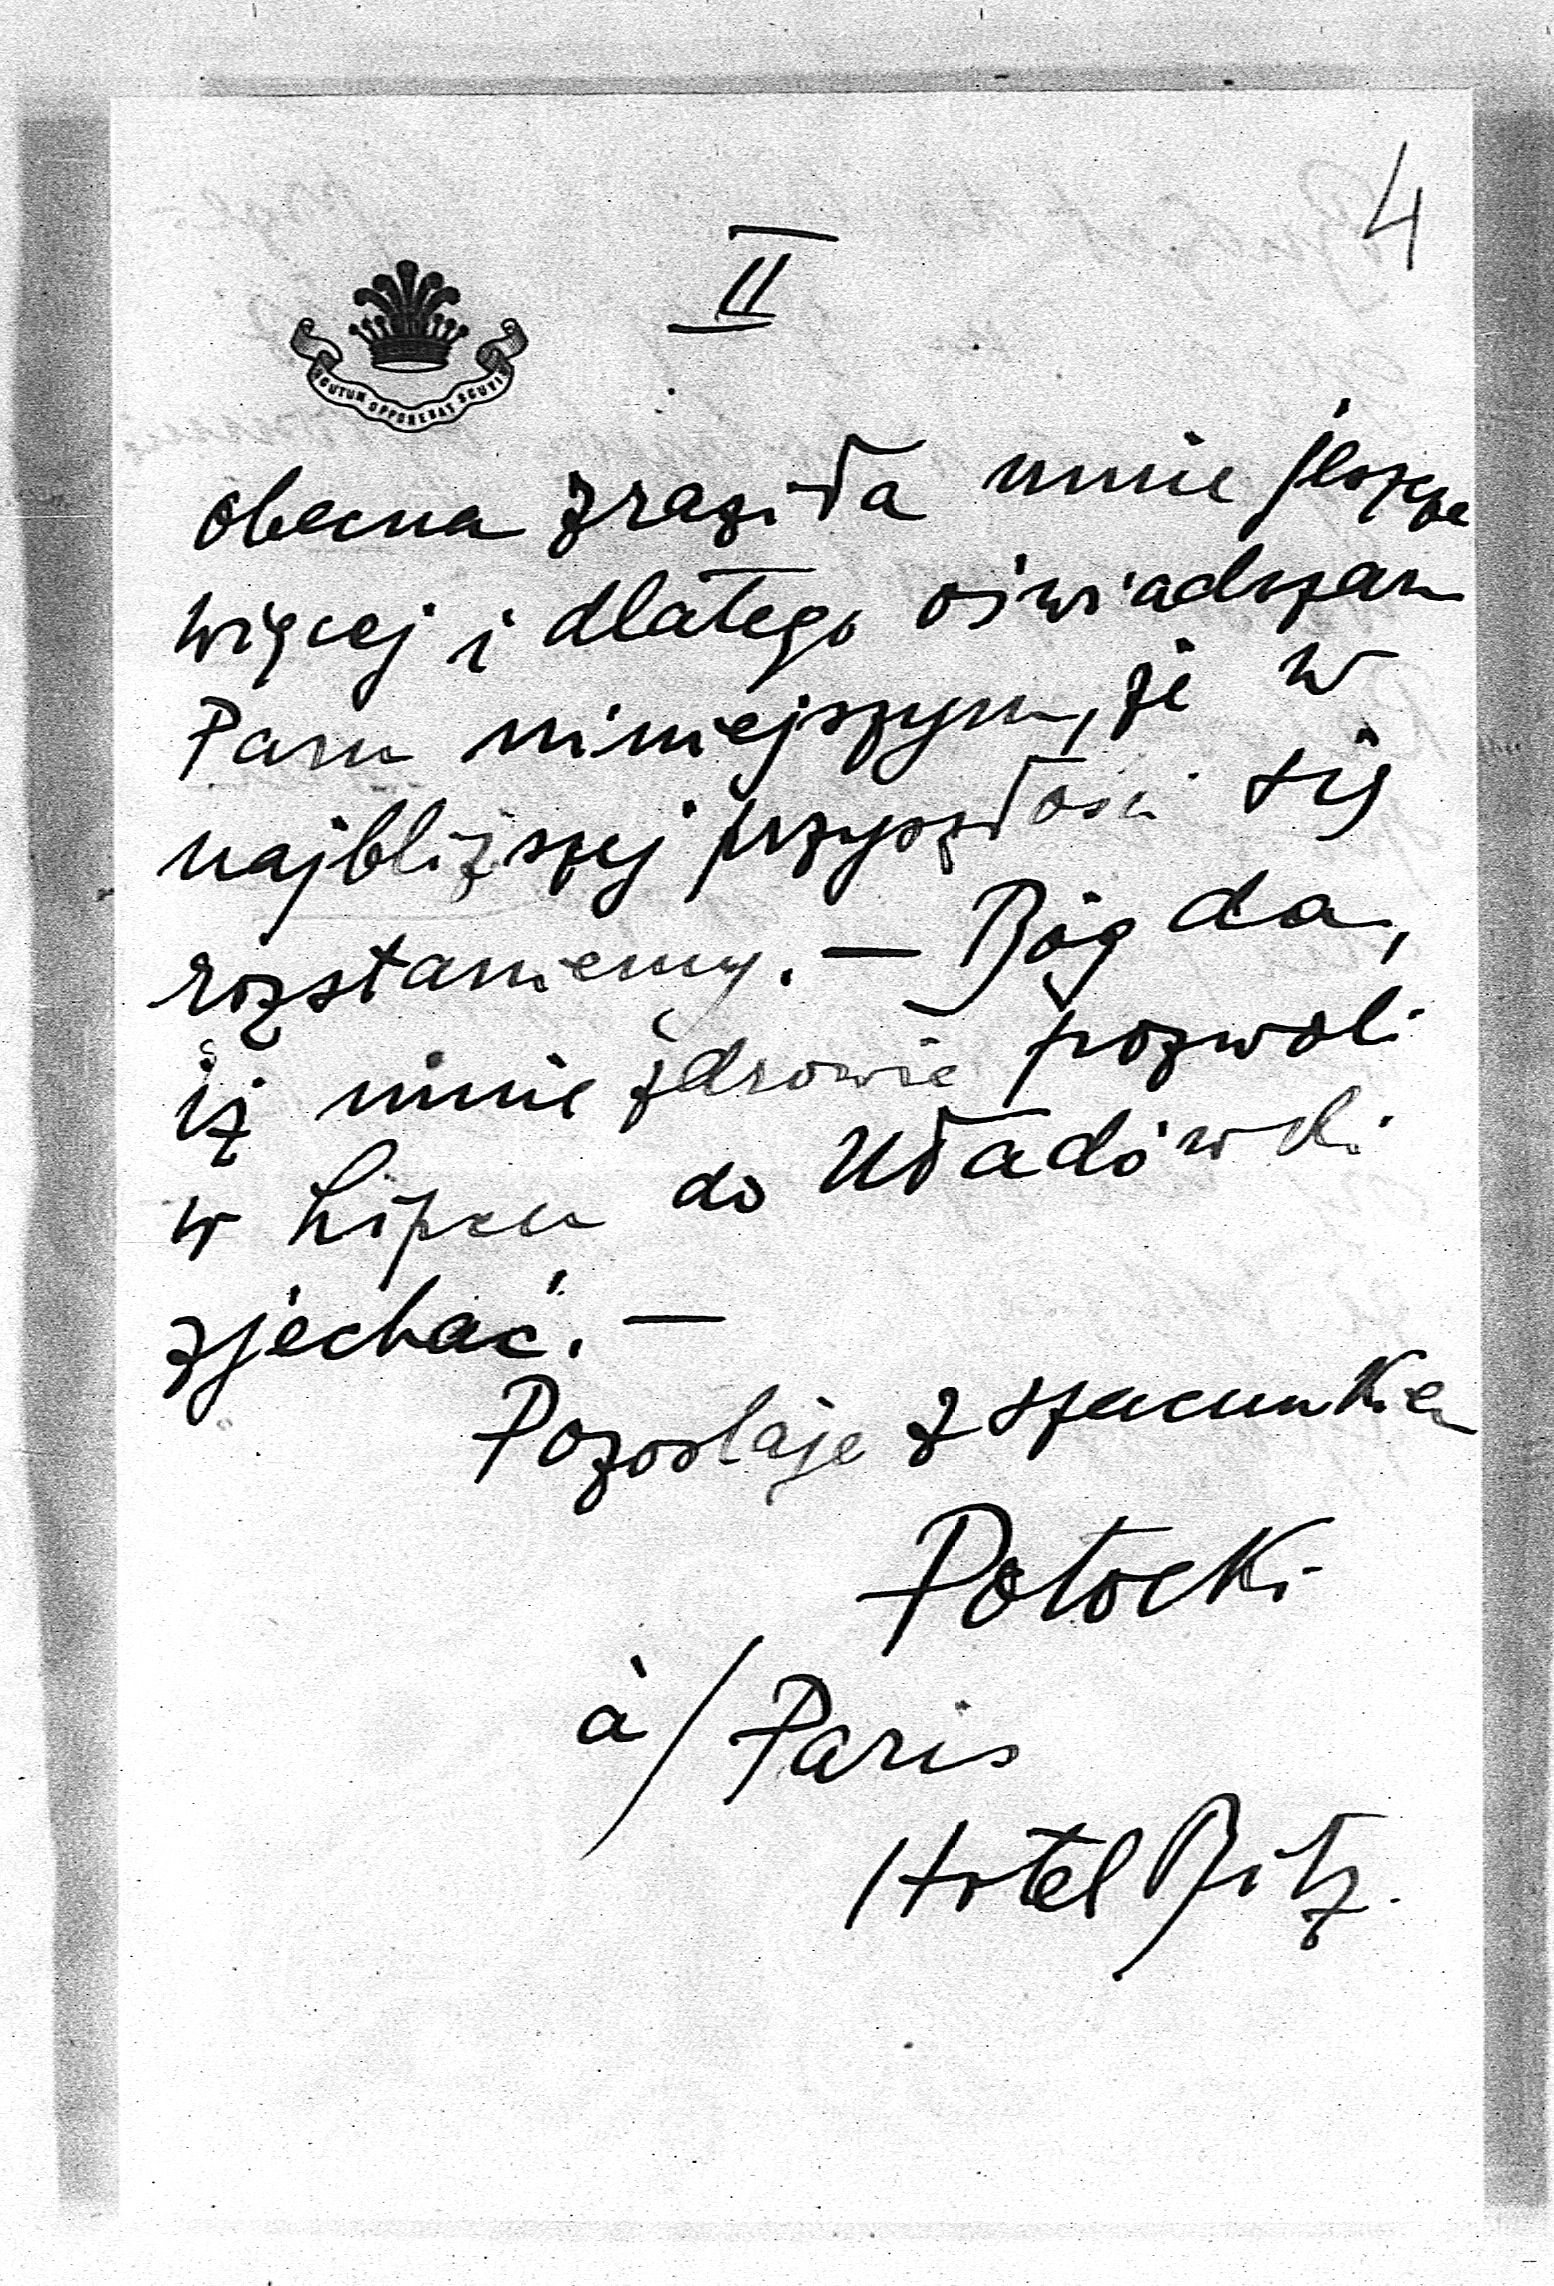 4
II
SCUTUM OPPONEBAT SCUTIS
obecna zraziła mnie jeszcze
więcej i dlatego oświadczam
Panu niniejszym, że w
najbliższej przyszłości się
rozstaniemy. — Bóg da,
iż mnie zdrowie pozwoli
w Lipcu do Uładówki
zjechać. —
Pozostaje z szacunkiem
Potocki
à / Paris
Hotel Ritz.